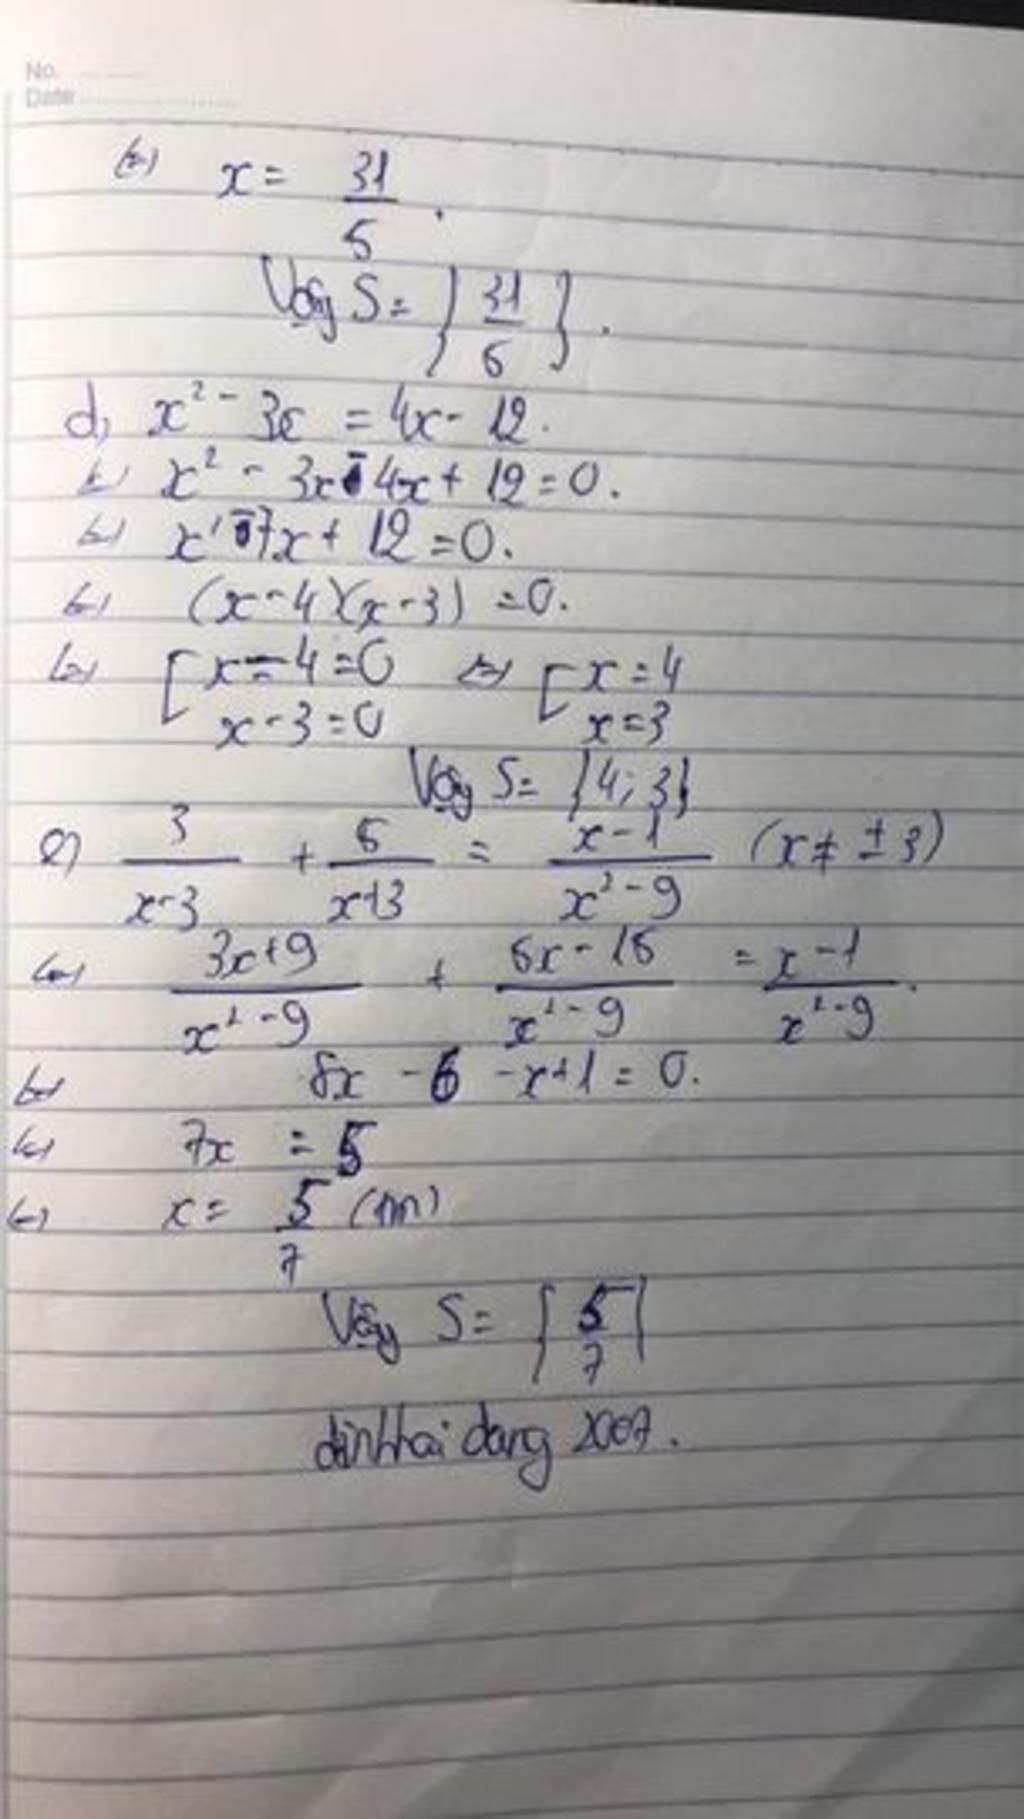 No.
Date
(=) x = 31/5 .
Vậy S = { 31/5 } .
d, x² - 3x = 4x - 12.
(=) x² - 3x - 4x + 12 = 0.
(=) x² - 7x + 12 = 0.
(=) (x - 4)(x - 3) = 0.
(=) [ x - 4 = 0 (=) [ x = 4
x - 3 = 0 x = 3
Vậy S = {4; 3}
e) 3/(x-3) + 5/(x+3) = (x-1)/(x²-9) (x ≠ ± 3)
(=) (3x+9)/(x²-9) + (5x-15)/(x²-9) = (x-1)/(x²-9) .
(=) 8x - 6 - x + 1 = 0.
(=) 7x = 5
(=) x = 5/7 (tm)
Vậy S = { 5/7 }
dinhhai dang 2007 .